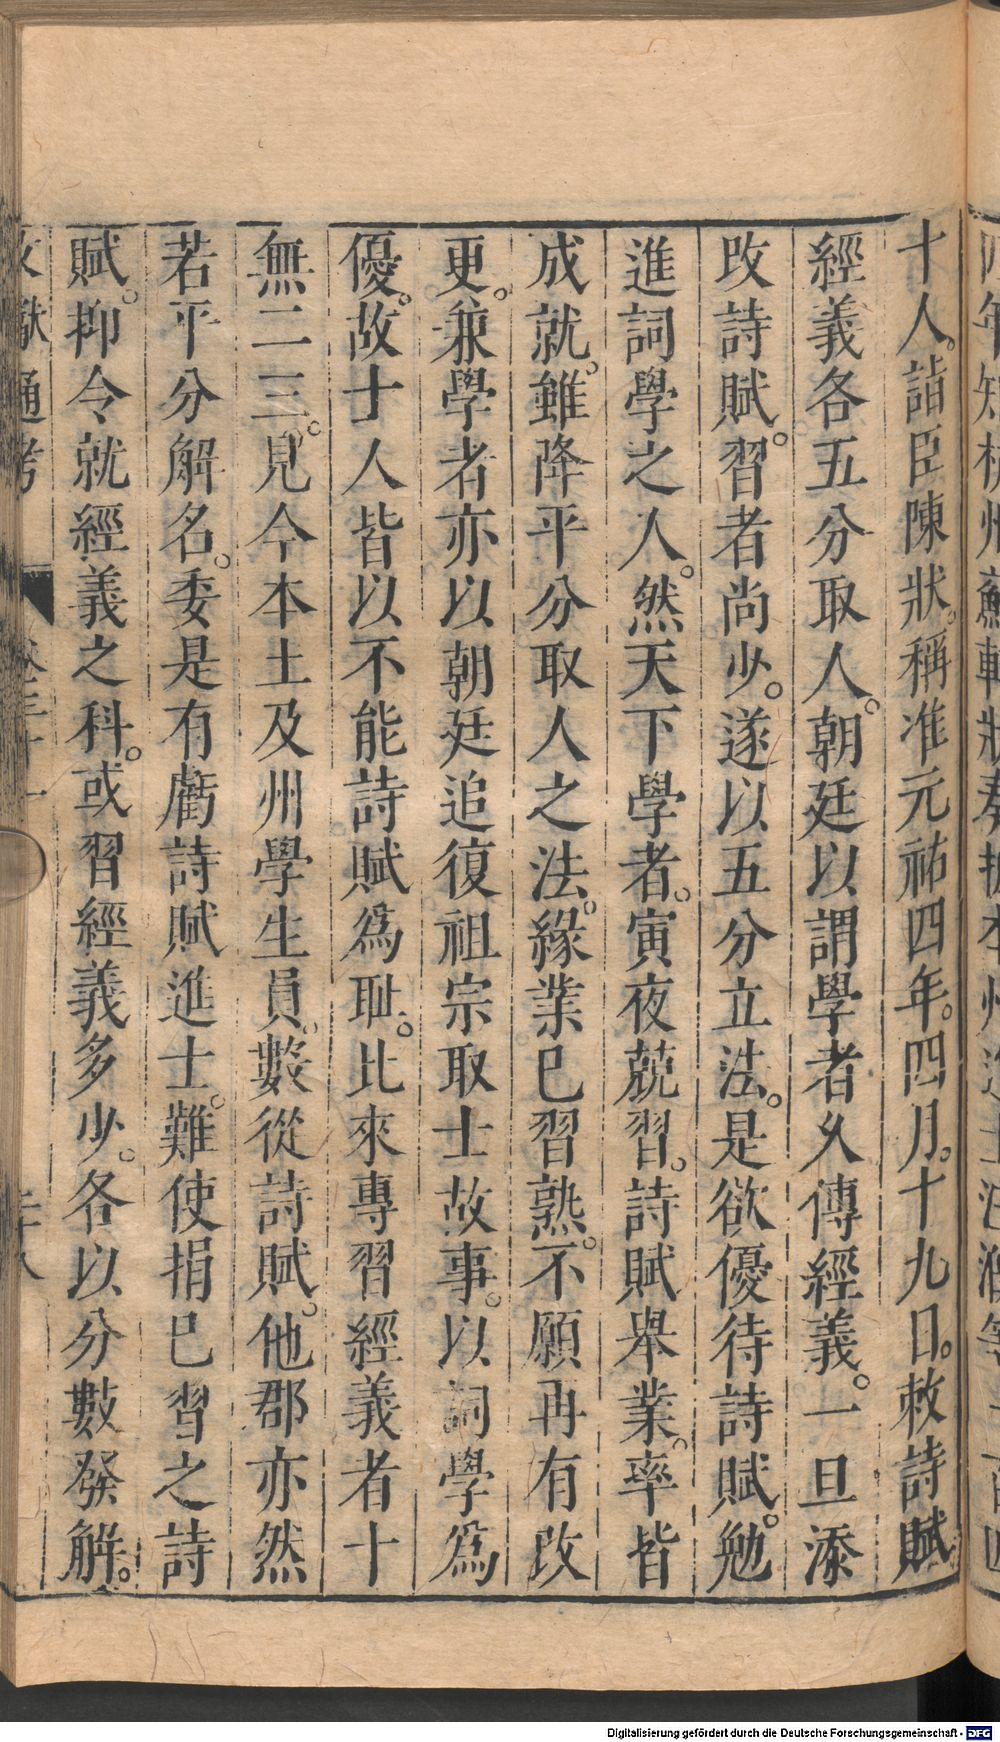 十人詣臣陳狀稱准元祐四年四月十九日敕詩賦
經義各五分取人朝廷以謂學者久傳經義一旦添
改詩賦習者尚少遂以五分立法是欲優待詩賦勉
進詞學之人然天下學者寅夜兢習詩賦舉業率皆
成就雖降平分取人之法緣業已習熟不願再有改
更兼學者亦以朝廷追復祖宗取士故事以詞學爲
優故士人皆以不能詩賦爲耻比來專習經義者十
無二三見今本土及州學生員數從詩賦他郡亦然
若平分解名委是有虧詩賦進士難使捐已習之詩
賦抑令就經義之科或習經義多少各以分數發解
文獻通考
Digitalisierung gefördert durch die Deutsche Forschungsgemeinschaft - DFG